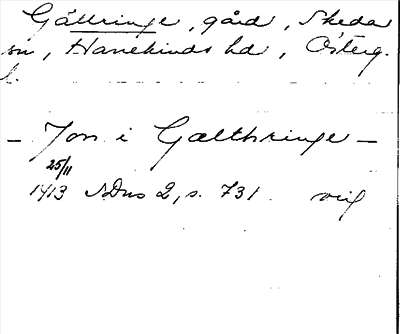 Gällringe, gård, Skeda
sn, Hanekinds hd, Österg.
l.
– Jon i Gælthringe –
25/11
1413 SDns 2, s. 731. orig